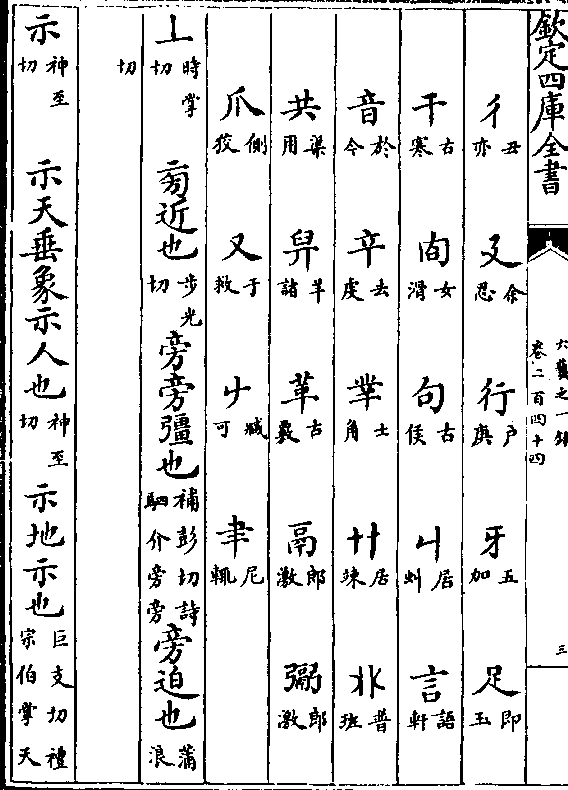 欽定四庫全書
六藝之一錄
卷二百四十四
三
彳丑亦 廴余忍 行戶庚 牙五加 足即玉
干古寒 㕯女滑 句古侯 丩居虯 言語軒
音於今 䇂去虔 丵士角 廾居竦 𠬜普班
共渠用 舁羊諸 革古覈 鬲郎激 䰜郎激
爪側狡 又于救 𠂇臧可 𦘒尼輒
丄時掌切 㫄近也步光切 旁旁彊也補彭切詩駟介旁旁 旁迫也蒲浪
切
示神至切 示天垂象示人也神至切 示地示也巨支切禮宗伯掌天